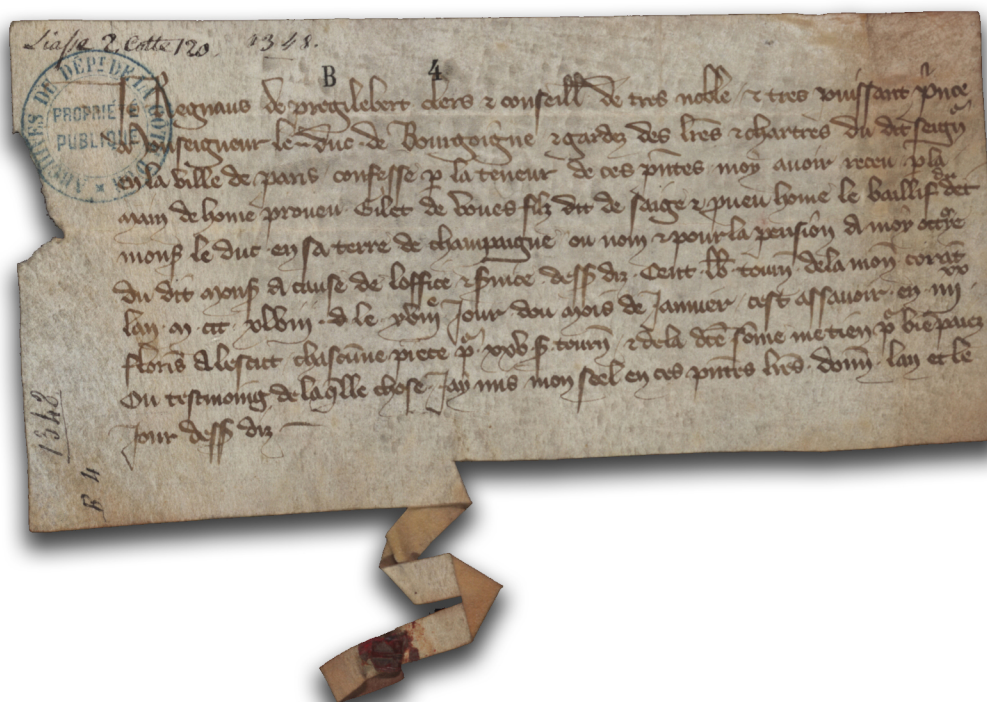 Liasse 2 Cotte 120 1348.
B 4
ARCHIVES DU DÉPT DE LA CÔTE D'OR
PROPRIÉTÉ
PUBLIQUE
Regnaus de pregilebert clers & conseill de tres noble & tres puissant pnce
monseigneur le duc de Bourgoigne & gardez des lres & chartres du dit seign
en la ville de paris confesse p la teneur de ces pntes moy avoir receu p la
main de home proveu Gilet de filz dit de saige & pveu home le baillif
mons le duc en sa terre de champaigne ou nom & pour la pension a moy
du dit mons a cause de loffice & dess diz Cent lb tourn de la monn
lan m ccc xlviii le jour dou mois de Janvier cest assavoir en iiii xx
florins a lescut chascune piece p xxv s tourn & de la dce some me tien p bie paiez
Ou tesmoing de laqlle chose Jay mis mon seel en ces pntes lres donn lan et le
jour dess diz
1348
B 4